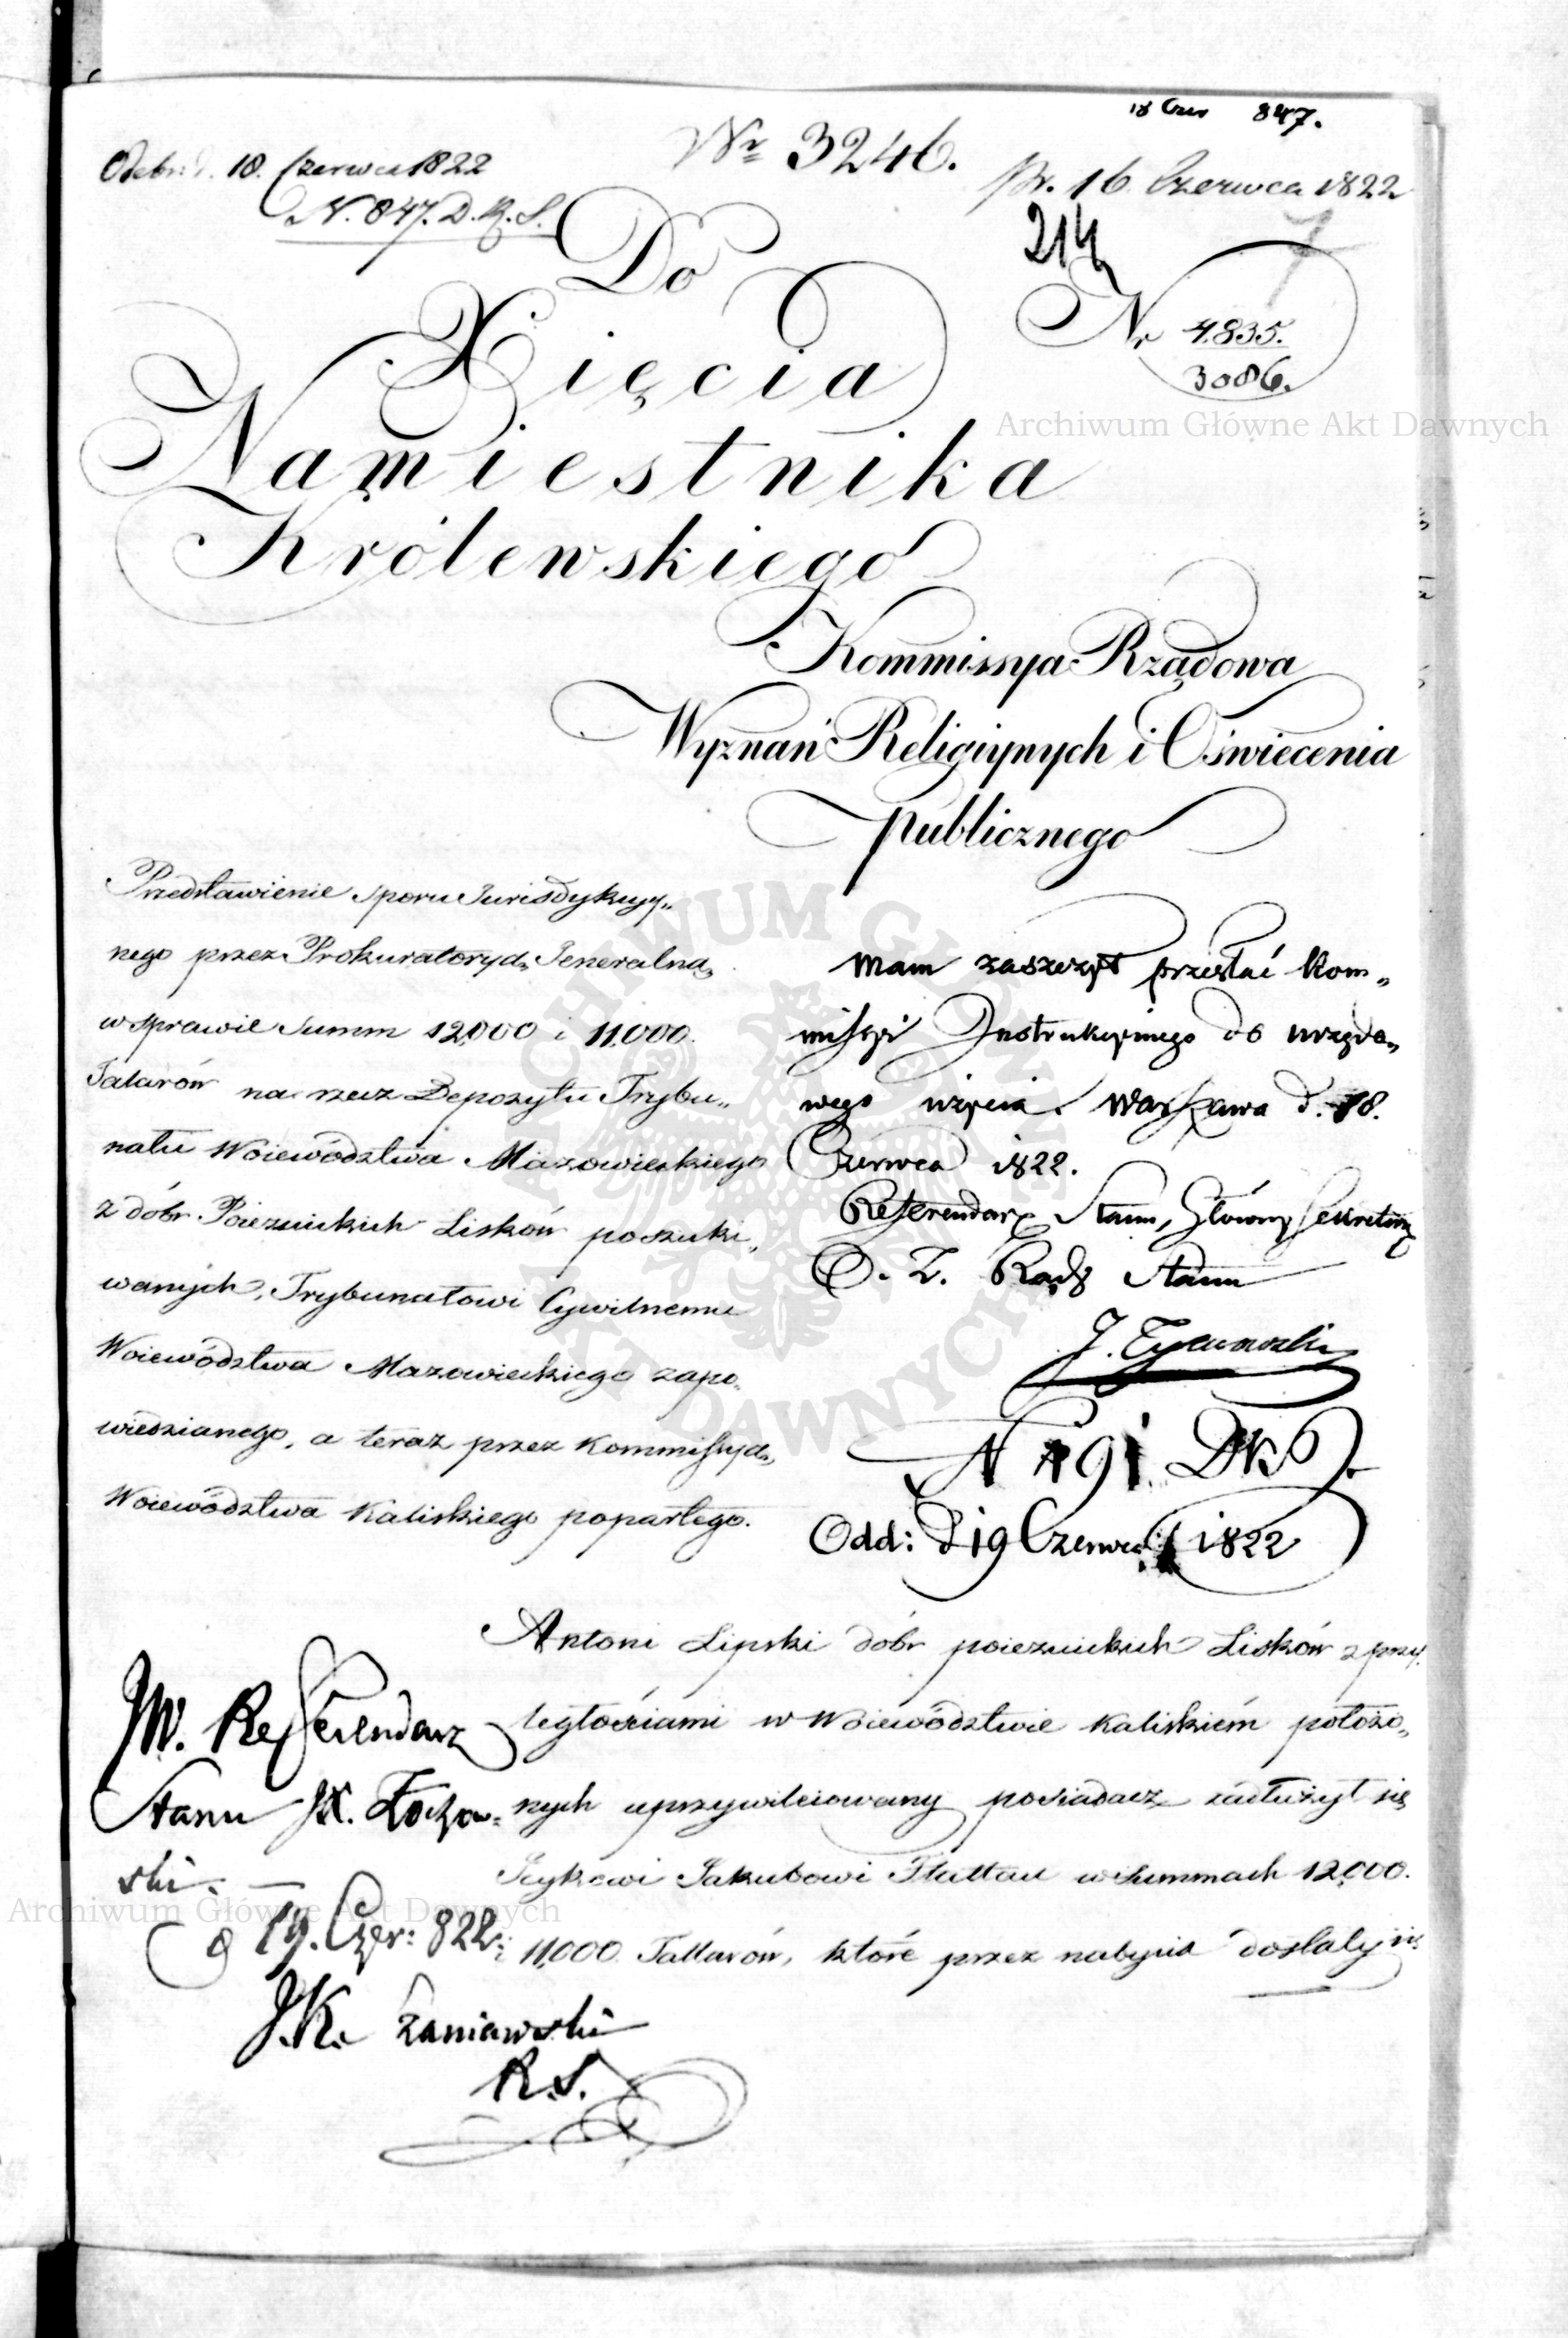 18 Czer 847.
Odebr: d. 18. Czerwca 1822
N. 847. D. R. S.
Nr 3246.
Pr. 16 Czerwca 1822
214
7
Nr 4835.
3086.
Do
Xięcia
Namiestnika
Królewskiego
Kommissya Rządowa
Wyznań Religiynych i Oświecenia
publicznego
Przedstawienie sporu Jurisdykcyy„
nego przez Prokuratoryą Jeneralną
w sprawie Summ 12,000 i 11,000.
Talarów na rzecz Depozytu Trybu„
nału Woiewództwa Mazowieckiego
z dóbr Poiezuickich Lisków poszuki„
wanych, Trybunałowi Cywilnemu
Woiewództwa Mazowieckiego zapo„
wiedzianego, a teraz przez Kommissyą
Woiewództwa Kaliskiego popartego.
Mam zaszczyt przesłać Kom„
missyi Instrukcyinego do urzędo„
wego użycia. Warszawa d. 18.
Czerwca 1822.
Referendarz Stanu, Główny Sekretarz
D. Z. Rady Stanu
J. Tymowski
N 191 DKS
Odd: d 19 Czerwca 1822
JW. Referendarz
Stanu JX.
ski. —
d 19. Czer: 822.
J. K. Szaniawski
R. S.
Antoni Lipski dóbr poiezuickich Lisków z przy„
ległościami w Woiewództwie Kaliskiém położo„
nych uprzywileiowany posiadacz zadłużył się
Szykowi Jakubowi Flattau w Summach 12,000.
i 11,000 Tallarów, które przez nabycia dostały się
Archiwum Główne Akt Dawnych
Archiwum Główne Akt Dawnych
ARCHIWUM GŁÓWNE AKT DAWNYCH